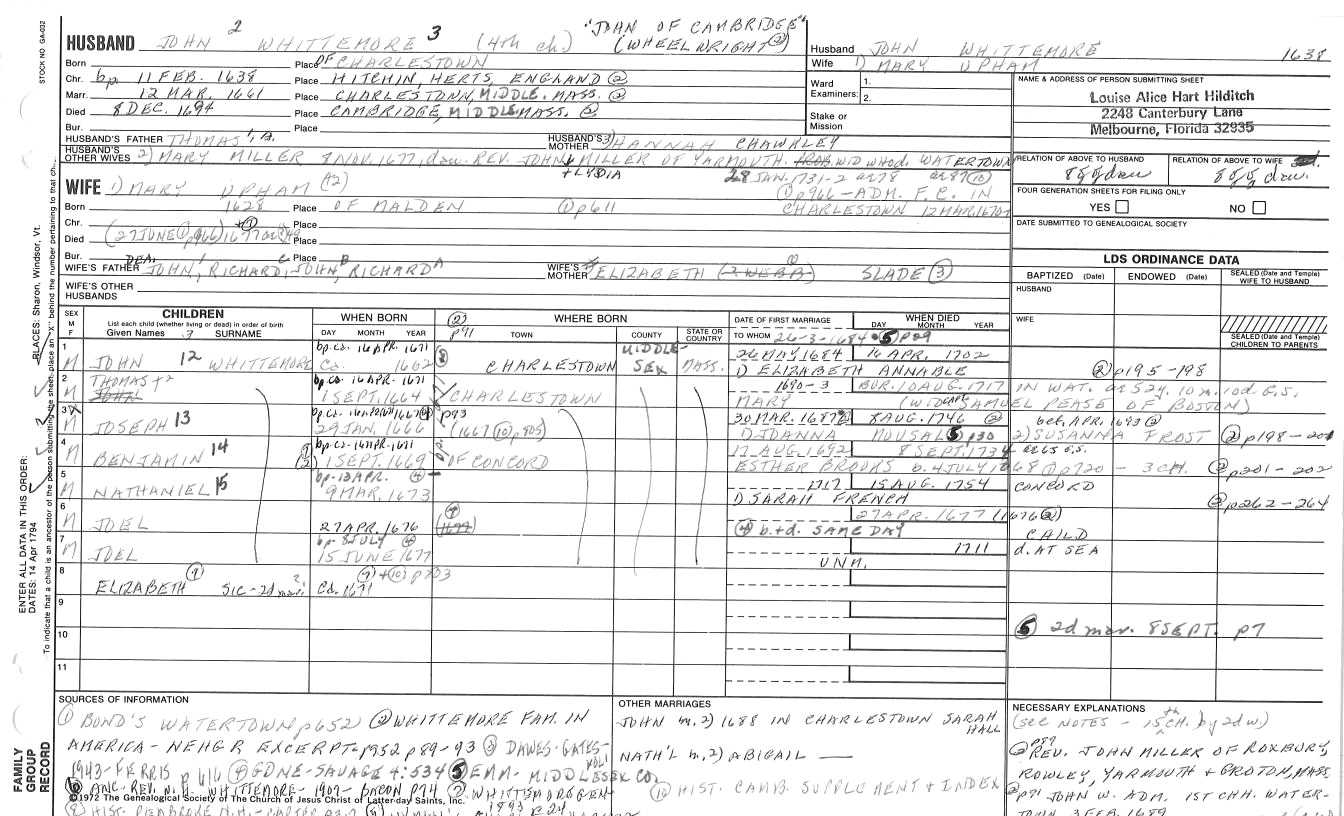 STOCK NO. GA-032
HUSBAND JOHN 2 WHITTEMORE 3 (4th ch) "JOHN OF CAMBRIDGE" (WHEELWRIGHT ②)
Born Place OF CHARLESTOWN
Chr. bp. 11 FEB. 1638 Place HITCHIN, HERTS, ENGLAND ②
Marr. 12 MAR. 1661 Place CHARLESTOWN, MIDDLE. MASS. ②
Died 8 DEC. 1694 Place CAMBRIDGE, MIDDLE MASS. ②
Bur. Place
HUSBAND'S FATHER THOMAS 1, A. HUSBAND'S MOTHER 3) HANNAH CHAWKLEY
HUSBAND'S OTHER WIVES 2) MARY MILLER 8 NOV. 1677, dau. REV. JOHN + MILLER OF YARMOUTH. PROB. WID WHO d. WATERTOWN
+ LYDIA 28 JAN. 1731-2 ae 78 ae 87 ⑩
① p966 - ADM. F. C. IN
CHARLESTOWN 12 MAR. 1670-1
Husband JOHN WHITTEMORE 1638
Wife 1) MARY UPHAM
Ward Examiners: 1.
2.
Stake or Mission
NAME & ADDRESS OF PERSON SUBMITTING SHEET
Louise Alice Hart Hilditch
2248 Canterbury Lane
Melbourne, Florida 32935
RELATION OF ABOVE TO HUSBAND RELATION OF ABOVE TO WIFE
8 g g dau 8 g g dau.
FOUR GENERATION SHEETS FOR FILING ONLY
YES NO
DATE SUBMITTED TO GENEALOGICAL SOCIETY
WIFE 1) MARY UPHAM
Born 1628 Place OF MALDEN ① p611
Chr. Place
Died (27 JUNE ① p966) 1677 ae 49 Place
Bur. Place
WIFE'S FATHER DEA. JOHN 1, RICHARD C, JOHN B, RICHARD A WIFE'S MOTHER ELIZABETH (? WEBB) SLADE ③
WIFE'S OTHER HUSBANDS
LDS ORDINANCE DATA
BAPTIZED (Date) ENDOWED (Date) SEALED (Date and Temple) WIFE TO HUSBAND
HUSBAND
WIFE
SEALED (Date and Temple) CHILDREN TO PARENTS
SEX M F
CHILDREN
List each child (whether living or dead) in order of birth
Given Names 3 SURNAME
WHEN BORN
DAY MONTH YEAR
② p91 WHERE BORN
TOWN COUNTY STATE OR COUNTRY
DATE OF FIRST MARRIAGE
TO WHOM 26-3-1684 ⑤ p29
WHEN DIED
DAY MONTH YEAR
1 M JOHN 12 WHITTEMORE bp. ca. 16 APR. 1671 Ca. 1662 CHARLESTOWN MIDDLESEX MASS. 26 MAY 1684 16 APR. 1702
1) ELIZABETH ANNABLE ② p195-198
2 M THOMAS +2 JOHN bp. ca. 16 APR. 1671 1 SEPT. 1664 CHARLESTOWN 1690-3 BUR. 10 AUG. 1717 IN WAT. ae 52 y. 10 m. 10 d. G.S.
MARY (WID CAPT. SAMUEL PEASE OF BOSTON)
3 M JOSEPH 13 29 JAN. 1666 (1667 ⑩ p805) 30 MAR. 1687 ② 8 AUG. 1746 ② bet. APR. 1693 ②
1) JOANNA MOUSAL ⑤ p30 2) SUSANNA FROST ② p198-201
4 M BENJAMIN 14 bp. ca. 16 APR. 1671 1 SEPT. 1669 OF CONCORD 17 AUG. 1692 8 SEPT. 1734 ae 65 G.S.
ESTHER BROOKS b. 4 JULY 1668 ① p720 - 3 CH. ② p201-202
5 M NATHANIEL 15 bp. 13 APR. ④ 9 MAR. 1673 1717 15 AUG. 1754 CONCORD
1) SARAH FRENCH ② p262-264
6 M JOEL 27 APR. 1676 (1677) 27 APR. 1677 (1676 ②)
④ b. + d. SAME DAY CHILD
7 M JOEL bp. 8 JULY ④ 15 JUNE 1677 1711 d. AT SEA
UNM.
8 ELIZABETH ⑨ SIC - 2d mar.? Ca. 1671 ⑨ + ⑩ p703
9
10
11
⑤ 2d mar. 8 SEPT. p7
SOURCES OF INFORMATION
① BOND'S WATERTOWN p652 ② WHITTEMORE FAM. IN
AMERICA - NEHGR EXCERPT - 1952 p89-93 ③ DAWES-GATES-
1943-FERRIS VOL. 1 p616 ④ GDNE-SAVAGE 4:534 ⑤ EMM-MIDDLESEX CO.
⑥ ANC. REV. N. H. WHITTEMORE - 1907 - BACON p74 ⑦ WHITTEMORE GEN.
©1972 The Genealogical Society of The Church of Jesus Christ of Latter-day Saints, Inc.
OTHER MARRIAGES
JOHN m. 2) 1688 IN CHARLESTOWN SARAH HALL
NATH'L m. 2) ABIGAIL —
⑩ HIST. CAMB. SUPPLEMENT + INDEX
NECESSARY EXPLANATIONS
(SEE NOTES - 15th CH. by 2d w.)
② p89 REV. JOHN MILLER OF ROXBURY,
ROWLEY, YARMOUTH + GROTON, MASS.
② p91 JOHN W. ADM. 1ST CHH. WATER-
TOWN 3 FEB. 1689
ENTER ALL DATA IN THIS ORDER:
DATES: 14 Apr 1794
PLACES: Sharon, Windsor, Vt.
To indicate that a child is an ancestor of the person submitting the sheet, place an "X" behind the number pertaining to that ch.
FAMILY GROUP RECORD